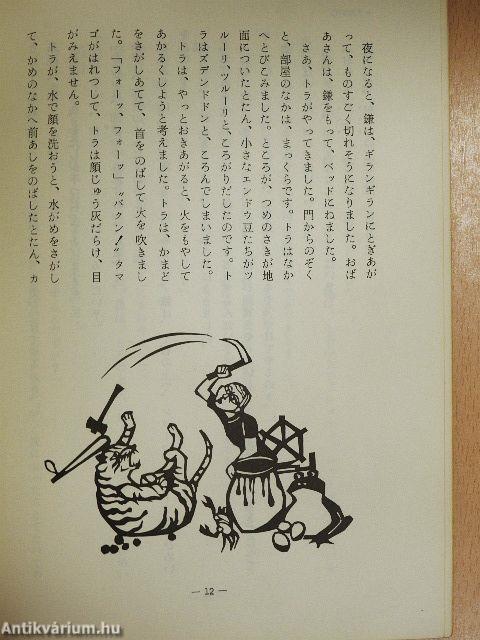 夜になると、鎌は、ギランギランにとぎあが
って、ものすごく切れそうになりました。おば
あさんは、鎌をもって、ベッドにねました。
さあ、トラがやってきました。門からのぞく
と、部屋のなかは、まっくらです。トラはなか
へとびこみました。ところが、つめのさきが地
面についたとたん、小さなエンドウ豆たちがツ
ルーリ、ツルーリと、ころがりだしたのです。ト
ラはズデンドドンと、ころんでしまいました。
トラは、やっとおきあがると、火をもやして
あかるくしようと考えました。トラは、かまど
をさがしあてて、首をのばして火を吹きまし
た。「フォーッ、フォーッ」〝バクン！〟タマ
ゴがはれつして、トラは顔じゅう灰だらけ、目
がみえません。
トラが、水で顔を洗おうと、水がめをさがし
て、かめのなかへ前あしをのばしたとたん、カ
— 12 —
Antikvárium.hu
Antikvárium.hu